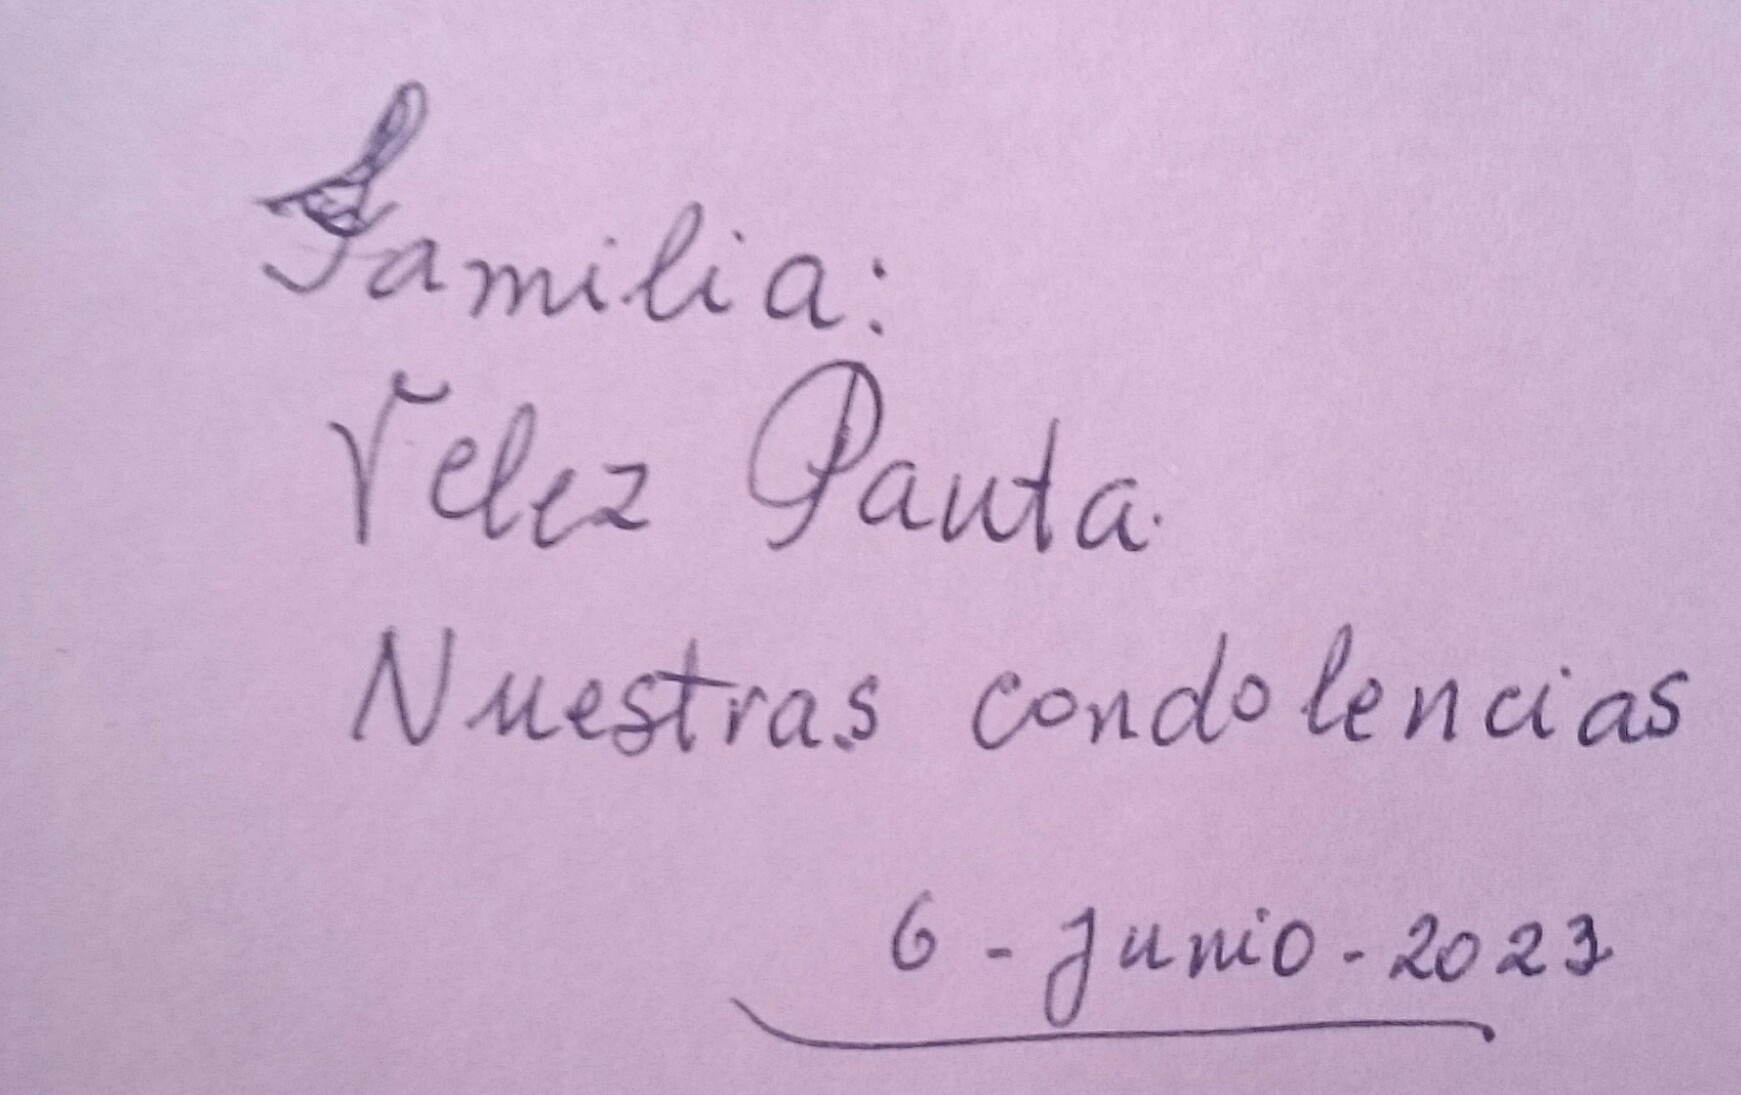 Familia:
Velez Pauta.
Nuestras condolencias
6 - Junio - 2023